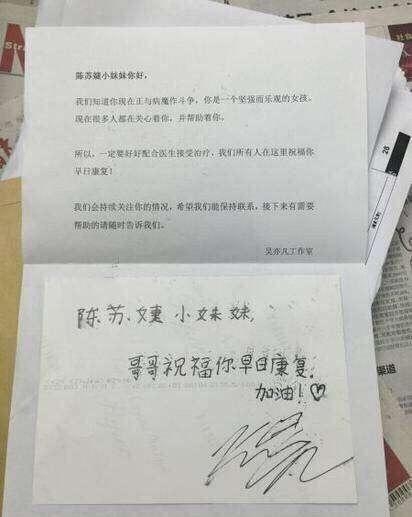 陈苏婕小妹妹你好，
我们知道你现在正与病魔作斗争，你是一个坚强而乐观的女孩。
现在很多人都在关心着你，并帮助着你。
所以，一定要好好配合医生接受治疗，我们所有人在这里祝福你
早日康复！
我们会持续关注你的情况，希望我们能保持联系，接下来有需要
帮助的请随时告诉我们。
吴亦凡工作室
陈苏婕小妹妹，
哥哥祝福你早日康复.
加油！♡